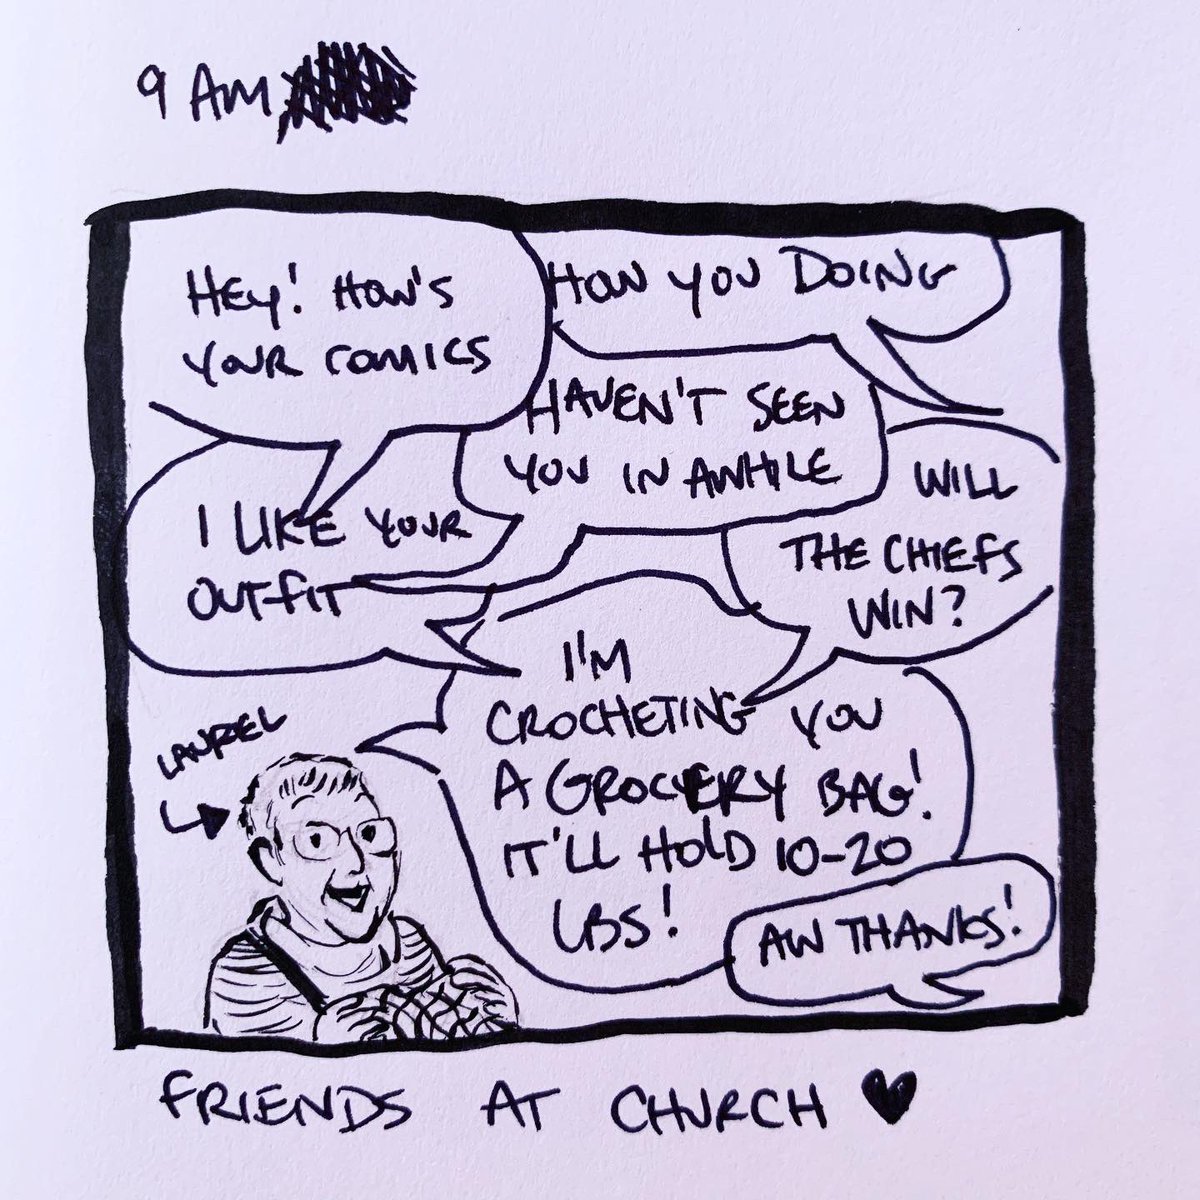 9 AM
HEY! HOW'S
YOUR COMICS
HOW YOU DOING
HAVEN'T SEEN
YOU IN AWHILE
I LIKE YOUR
OUTFIT
WILL
THE CHIEFS
WIN?
I'M
CROCHETING YOU
A GROCERY BAG!
IT'LL HOLD 10-20
LBS!
AW THANKS!
LAUREL
FRIENDS AT CHURCH